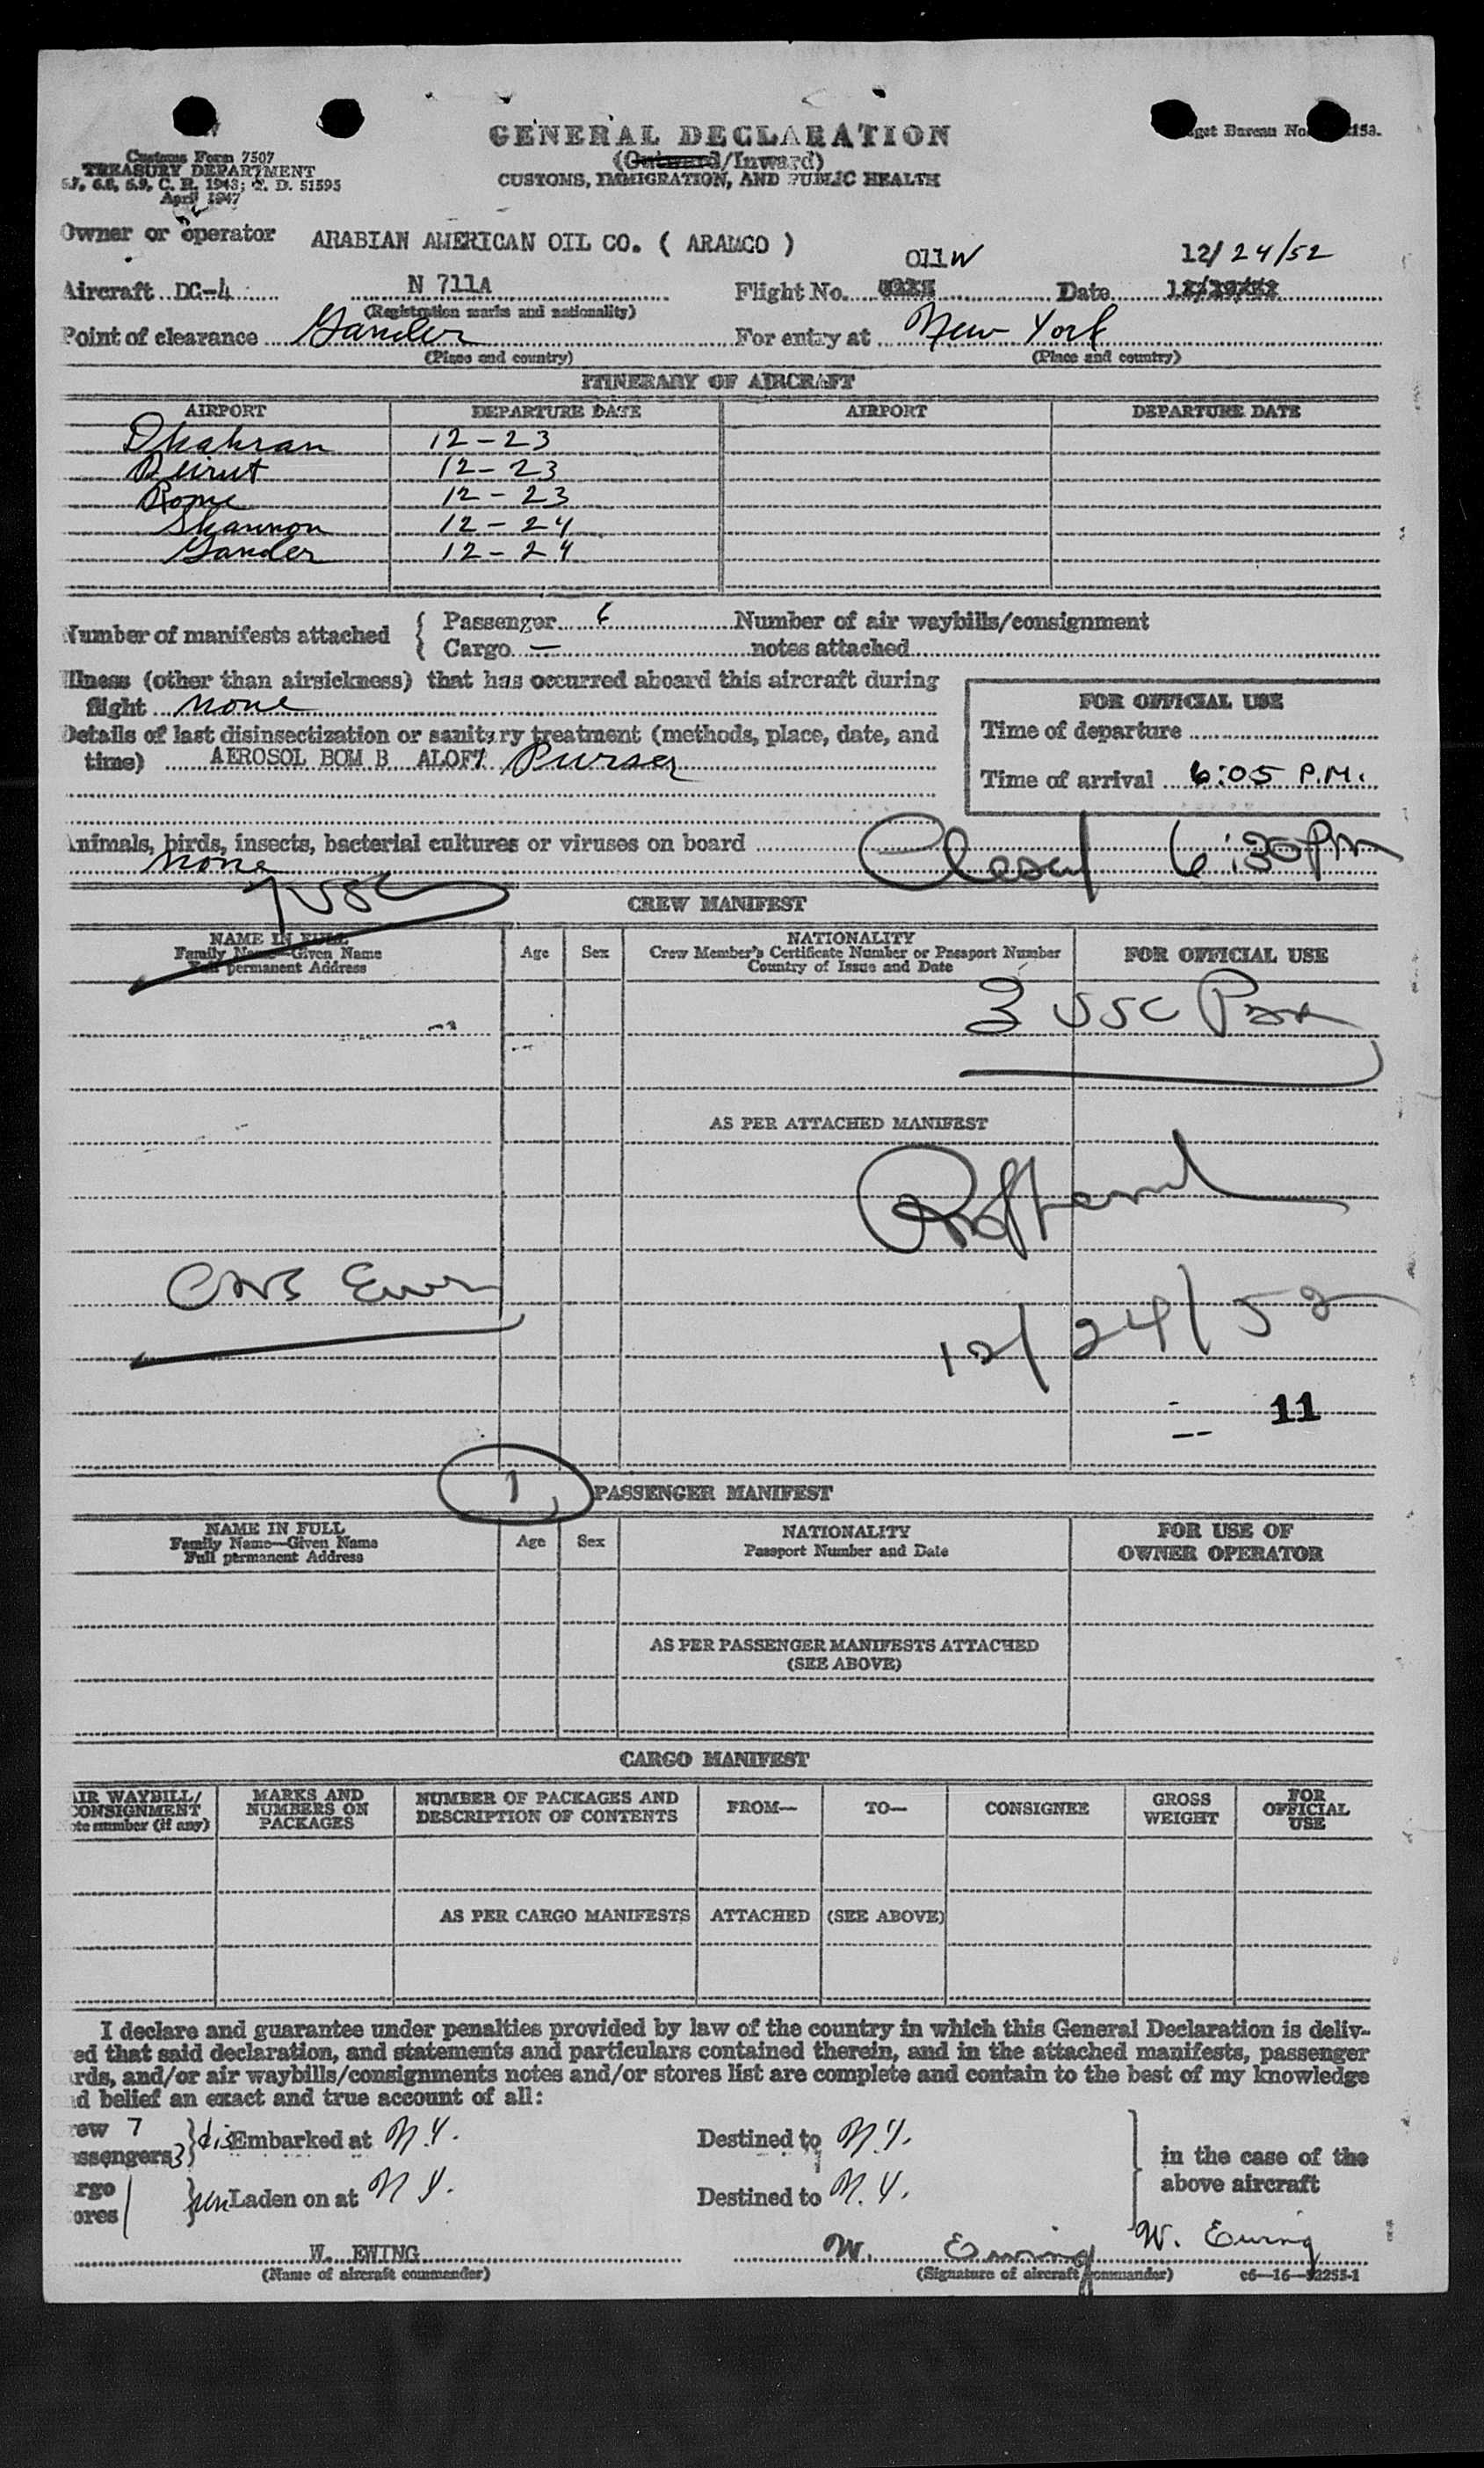 GENERAL DECLARATION
(Outward/Inward)
CUSTOMS, IMMIGRATION, AND PUBLIC HEALTH
Customs Form 7507
TREASURY DEPARTMENT
6.8, 6.9, C. R. 1943; T. D. 51595
April 1947
get Bureau No. 153.
Owner or operator ARABIAN AMERICAN OIL CO. ( ARAMCO )
011W 12/24/52
Aircraft DC-4 N 711A Flight No. Date
(Registration marks and nationality)
Point of clearance Gander For entry at New York
(Place and country) (Place and country)
ITINERARY OF AIRCRAFT
AIRPORT DEPARTURE DATE AIRPORT DEPARTURE DATE
Dhahran 12-23
Beirut 12-23
Rome 12-23
Shannon 12-24
Gander 12-24
Number of manifests attached { Passenger Number of air waybills/consignment
Cargo — notes attached
Illness (other than airsickness) that has occurred aboard this aircraft during
flight none
Details of last disinsectization or sanitary treatment (methods, place, date, and
time) AEROSOL BOM B ALOFT Purser
FOR OFFICIAL USE
Time of departure
Time of arrival 6:05 P.M.
Animals, birds, insects, bacterial cultures or viruses on board
none
6:30 PM
7 USC
CREW MANIFEST
NAME IN FULL
Family Name—Given Name
Full permanent Address
Age Sex
NATIONALITY
Crew Member's Certificate Number or Passport Number
Country of Issue and Date
FOR OFFICIAL USE
3 USC Pax
AS PER ATTACHED MANIFEST
12/24/52
11
1
PASSENGER MANIFEST
NAME IN FULL
Family Name—Given Name
Full permanent Address
Age Sex
NATIONALITY
Passport Number and Date
FOR USE OF
OWNER OPERATOR
AS PER PASSENGER MANIFESTS ATTACHED
(SEE ABOVE)
CARGO MANIFEST
AIR WAYBILL/
CONSIGNMENT
ote number (if any)
MARKS AND
NUMBERS ON
PACKAGES
NUMBER OF PACKAGES AND
DESCRIPTION OF CONTENTS
FROM— TO— CONSIGNEE
GROSS
WEIGHT
FOR
OFFICIAL
USE
AS PER CARGO MANIFESTS ATTACHED (SEE ABOVE)
I declare and guarantee under penalties provided by law of the country in which this General Declaration is deliv-
ed that said declaration, and statements and particulars contained therein, and in the attached manifests, passenger
rds, and/or air waybills/consignments notes and/or stores list are complete and contain to the best of my knowledge
d belief an exact and true account of all:
ew 7
ssengers 3 } dis Embarked at N.Y. Destined to N.Y. } in the case of the
above aircraft
rgo
ores } un Laden on at N.Y. Destined to N.Y.
W. Ewing
W. EWING W. Ewing
(Name of aircraft commander) (Signature of aircraft commander) c6—16—52255-1